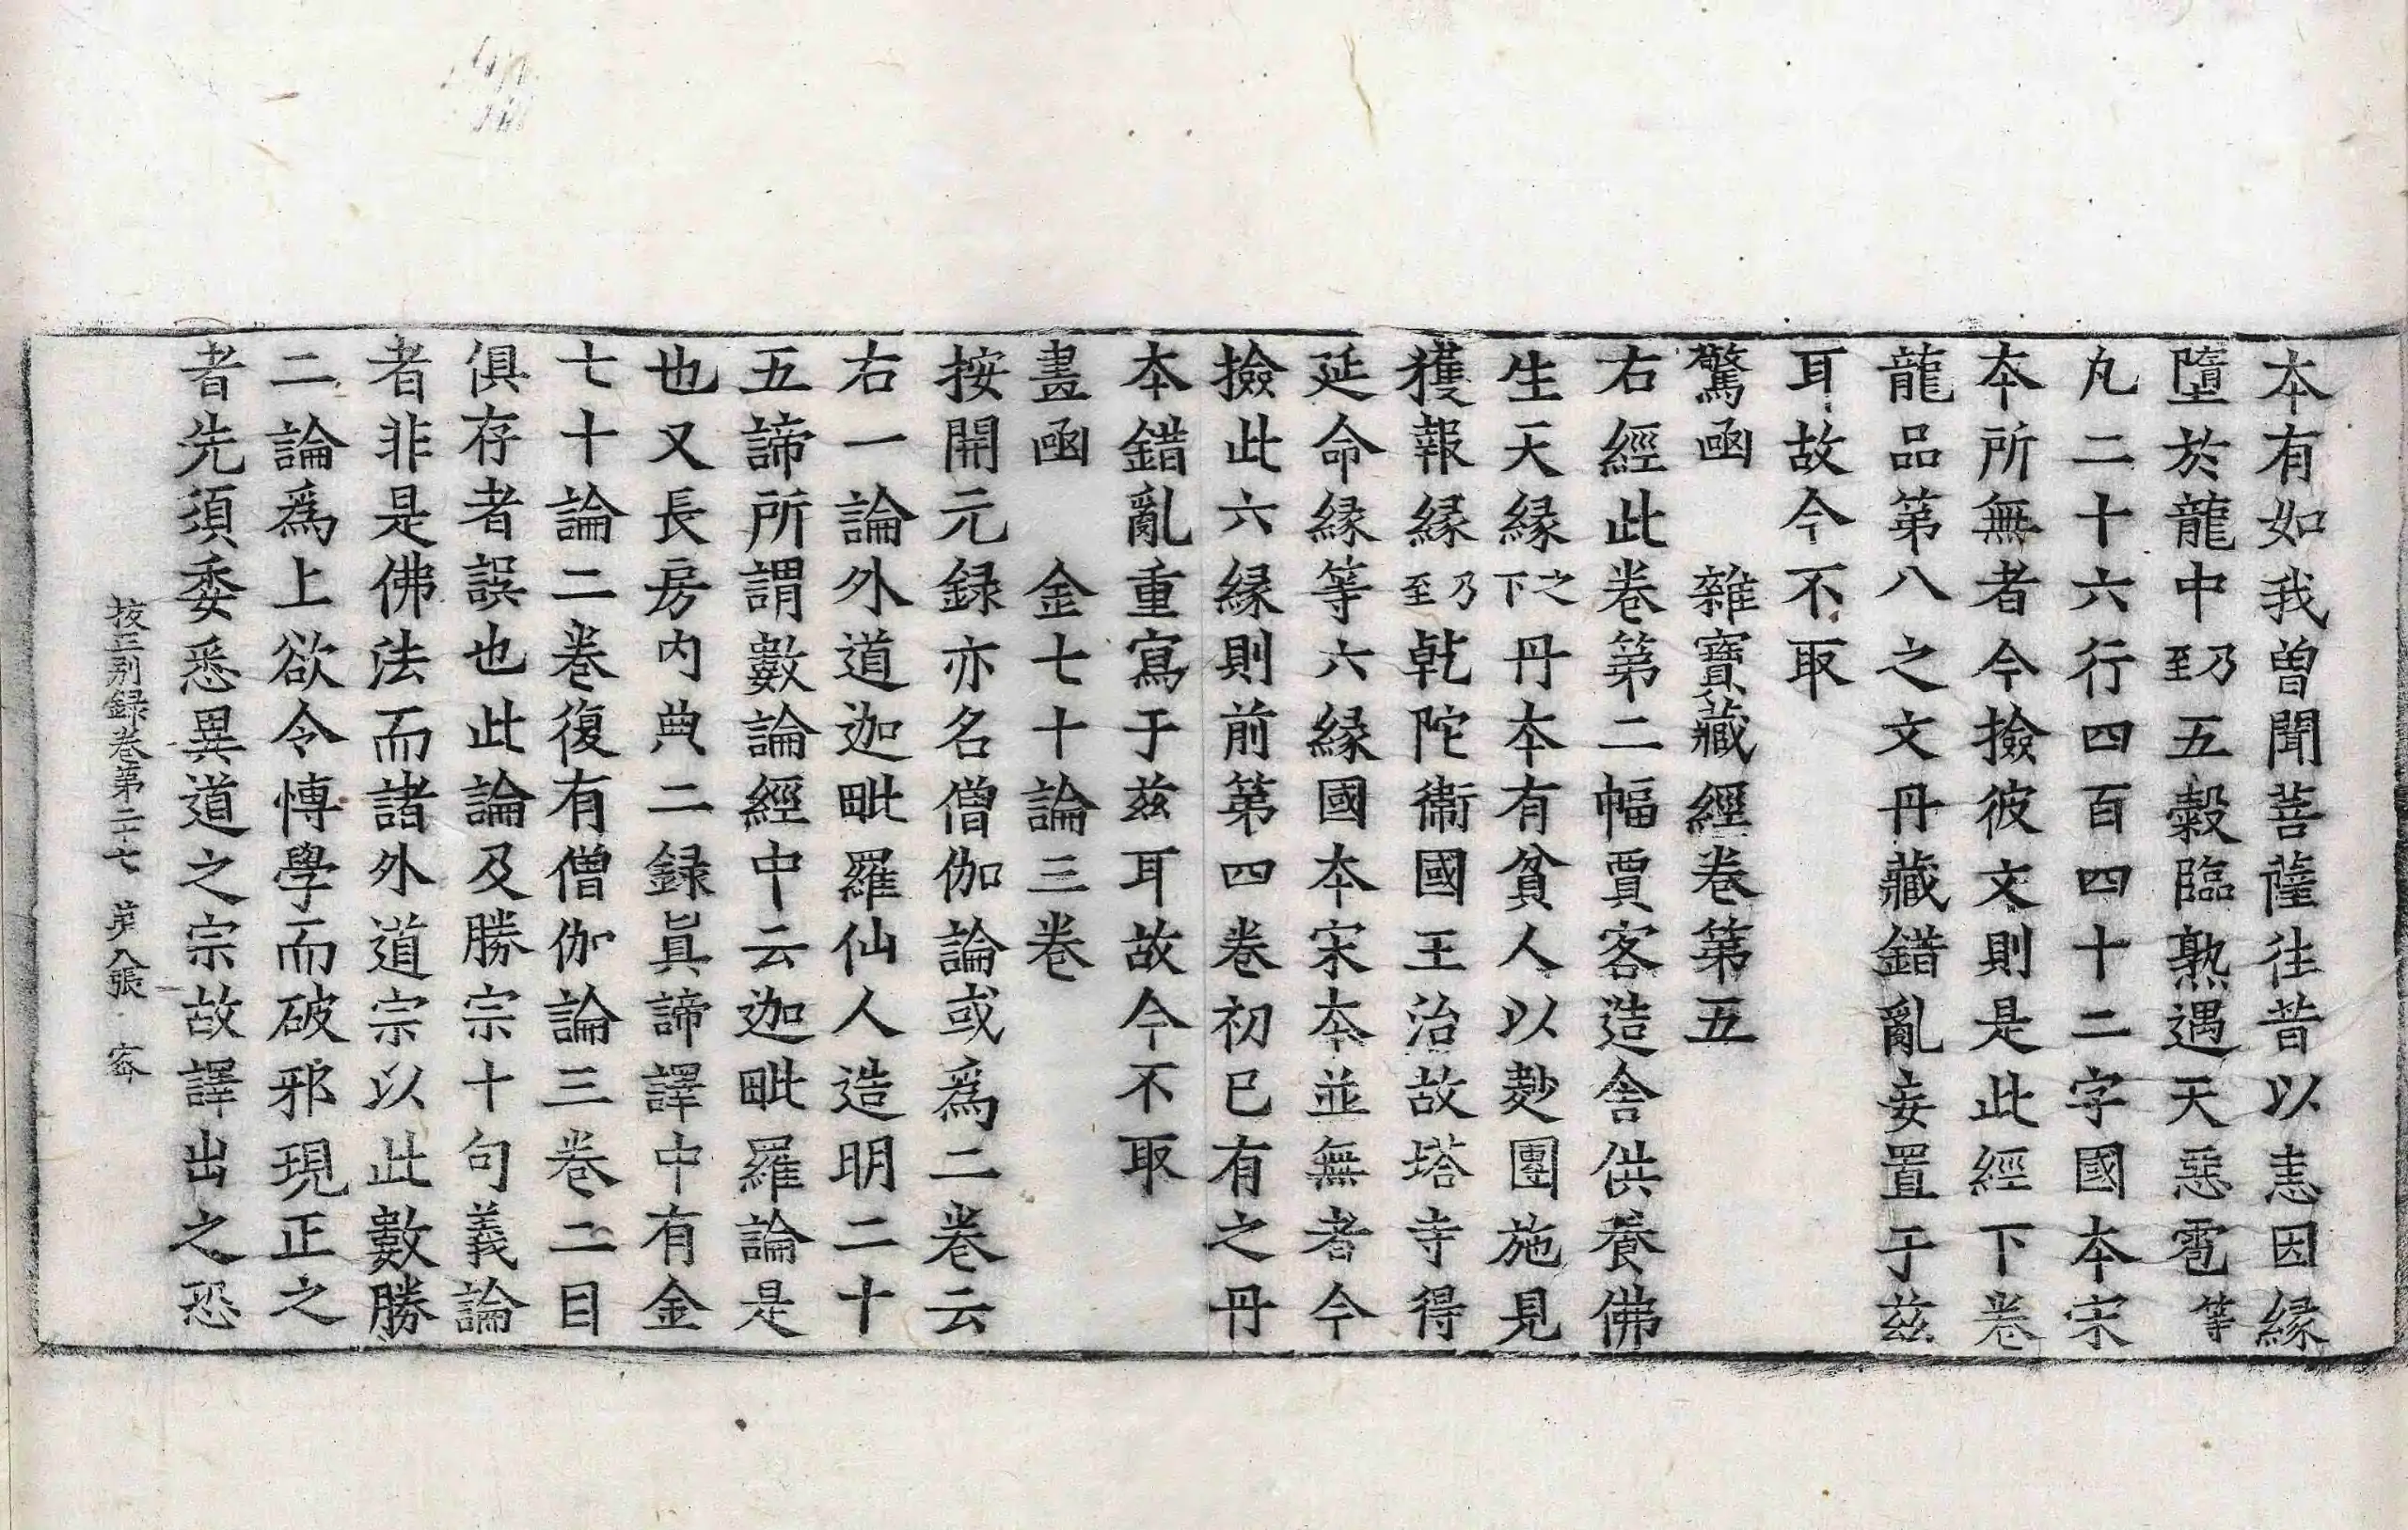 本有如我曾聞菩薩往昔以恚因緣
墮於龍中乃至五穀臨熟遇天惡雹等
凡二十六行四百四十二字國本宋
本所無者今撿彼文則是此經下卷
龍品第八之文丹藏錯亂妄置于茲
耳故今不取
驚函　雜寶藏經卷第五
右經此卷第二幅賈客造舍供養佛
生天緣之下丹本有貧人以麨團施見
獲報緣乃至乾陀衛國王治故塔寺得
延命緣等六緣國本宋本並無者今
撿此六緣則前第四卷初已有之丹
本錯亂重寫于茲耳故今不取
畫函　金七十論三卷
按開元録亦名僧伽論或爲二卷云
右一論外道迦毗羅仙人造明二十
五諦所謂數論經中云迦毗羅論是
也又長房内典二録眞諦譯中有金
七十論二卷復有僧伽論三卷二目
俱存者誤也此論及勝宗十句義論
者非是佛法而諸外道宗以此數勝
二論爲上欲令博學而破邪現正之
者先須委悉異道之宗故譯出之恐
挍正别録卷第二十七　第八張　密